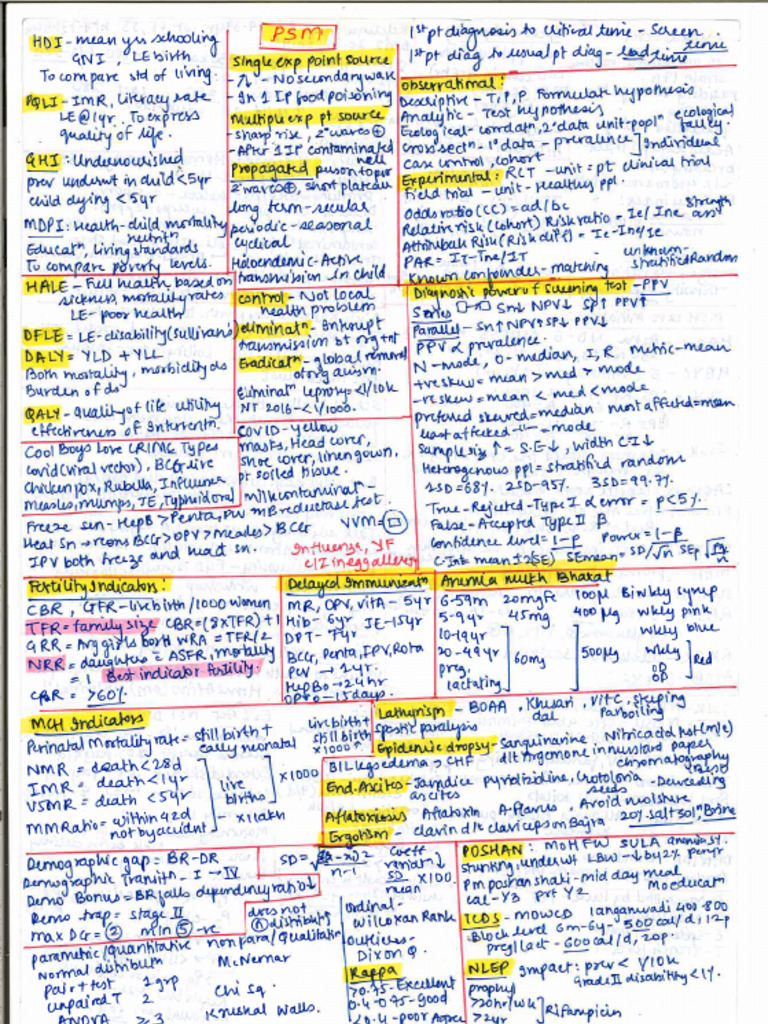 PSM
HDI - mean yrs schooling
GNI, LE birth
To compare std of living.
PQLI - IMR, Literacy rate
LE @ 1yr. To express
quality of life.
GHI: Undernourished
prev underwt in child <5yr
child dying <5yr
MDPI: Health - child mortality
nutritn
Educatn, living standards
To compare poverty levels.
HALE - Full health, based on
sickness, mortality rates
LE - poor health
DFLE = LE - disability (Sullivan's)
DALY = YLD + YLL
Both mortality, morbidity ds
Burden of ds
QALY - Quality of life utility
effectiveness of Interventn.
Single exp point source
- No secondary wave
- In 1 IP food poisoning
Multiple exp pt source
- sharp rise, 2° waves ⊕
- After 1 IP contaminated
well
Propagated person to per
2° waves ⊕, short plateau
long term - secular
periodic - seasonal
cyclical
Holoendemic - Active
transmission in child
control - Not local
health problem
eliminatn - Interrupt
transmission of org tnt
Eradicatn - global removal
of organism.
Eliminatn leprosy - <1/10K
NT 2016 - <1/1000.
1st pt diagnosis to critical time - Screen
time
1st pt diag to usual pt diag - lead time
Observational:
Descriptive - T, P, P Formulate hypothesis
Analytic - Test hypothesis
Ecological - corrdatn, 2° data unit - popln ecological
fallacy
Cross sectn - 1° data - prevalence ] Individual
case control, cohort
Experimental: RCT - unit - pt clinical trial
Field trial - unit - Healthy ppl.
Odds ratio (CC) = ad/bc
Relative risk (cohort) Risk ratio = Ie/Ine strength
ass
Attributable Risk (Risk diff) = Ie-Ine/Ie
PAR = It-Ine/It
Known confounders - matching unknown -
stratified Random
Diagnostic power of Screening test - PPV
Series Sn↓ NPV↓ Sp↑ PPV↑
Parallel - Sn↑ NPV↑ SP↓ PPV↓
PPV α prevalence.
N - mode, O - median, I, R metric - mean
+ve skew = mean > med > mode
- ve skew = mean < med < mode
preferred skewed = median most affected = mean
least affected -"- = mode
Sample siz ↑ = S.E ↓, width CI ↓
Heterogenous ppl = stratified random
1SD = 68% 2SD - 95% 3SD = 99.7%
True - Rejected - Type I α error = p<5%.
False - Accepted Type II β
confidence level = 1-β Power = 1-β
C. Int = mean ± 2(SE) SE mean = SD/√n SEp √pq/n
Cool Boys Love CRIME Types
covid (viral vector), BCG live
Chickenpox, Rubella, Influenza
measles, mumps, JE, Typhoid oral
COVID - yellow
masks, Head cover,
shoe cover, linen gown,
pt soiled tissue.
milk contaminatn -
MB reductase test.
Freeze sen - HepB > Penta, PW
Heat Sn → rooms BCG > OPV > measles > BCG
IPV both freeze and heat sn.
VVM =
Influenza, YF
C/I in egg allergy
Fertility Indicators:
CBR, GFR - live birth / 1000 women
TFR = family size CBR = (8xTFR) + 1
GRR = Avg girls born WRA = TFR/2
NRR = daughters = ASFR, mortality
= 1 Best indicator fertility.
CPR = >60%
Delayed Immunizatn
MR, OPV, vitA - 5yr
Hib - 6yr JE - 15yr
DPT - 7yr
BCG, Penta, IPV, Rota
PCV → 1yr.
HepB0 → 24hr
OPV0 - 15days.
Anemia mukth Bharat
6-59m 20mg Fe 100μ Biwkly syrup
5-9yr 45mg 400μg wkly pink
10-19yr wkly blue
20-49yr 60mg 500μg wkly Red
preg. OD
lactating OD
MCH Indicators
Perinatal Mortality rate = still birth +
early neonatal
live birth +
still birth
x1000
NMR = death <28d
IMR = death <1yr
U5MR = death <5yr
live
births
x1000
MMRatio = within 42d
not by accident
x1 lakh
Lathyrism - BOAA, Khesari, vit C, steeping
dal Parboiling
spastic paralysis
Epidemic dropsy - Sanguinarine Nitric acid test (m/c)
d/t Argemone in mustard paper
chromatography
Bil leg oedema → CHF
End. Ascites - Jaundice pyrolizidine, Crotolaria - Deweeding
ascites seeds
Aflatoxicosis Aflatoxin A-flavus, Avoid moisture
Ergotism - clavin d/t claviceps on Bajra 20% salt soln, Brine
Demographic gap = BR-DR
Demographic Transitn - I → IV
Demo Bonus = BR falls dependency ratio ↓
Demo trap = stage II
max DG = ② min ⑤ -ve
SD =
n-1
Coeff
variatn ↓
SD
mean x100.
does not
distributn
parametric/Quantitative
Normal distributn
pair t test 1 grp
unpaired T 2
ANOVA ≥ 3
non para/Qualitative
McNemar
Chi sq.
Kruskal Walls.
Ordinal -
Wilcoxan Rank
Outliers -
Dixon Q.
Kappa
>0.75 - Excellent
0.4-0.75 - good
<0.4 - poor
POSHAN: MOHFW
stunting, underwt LBW → ↓by 2% per yr
Pm poshan shakti - mid day meal
cal - Y3 prt Y2 Mo educatn
ICDS - MOWCD 1 anganwadi 400-800
Block level 6m-6y - 500cal/d, 12p
preg/lact - 600cal/d, 20p.
NLEP Impact: prev < 1/10K
grade II disability <1%.
prophy
>20hr/wk
>2yr
Rifampicin